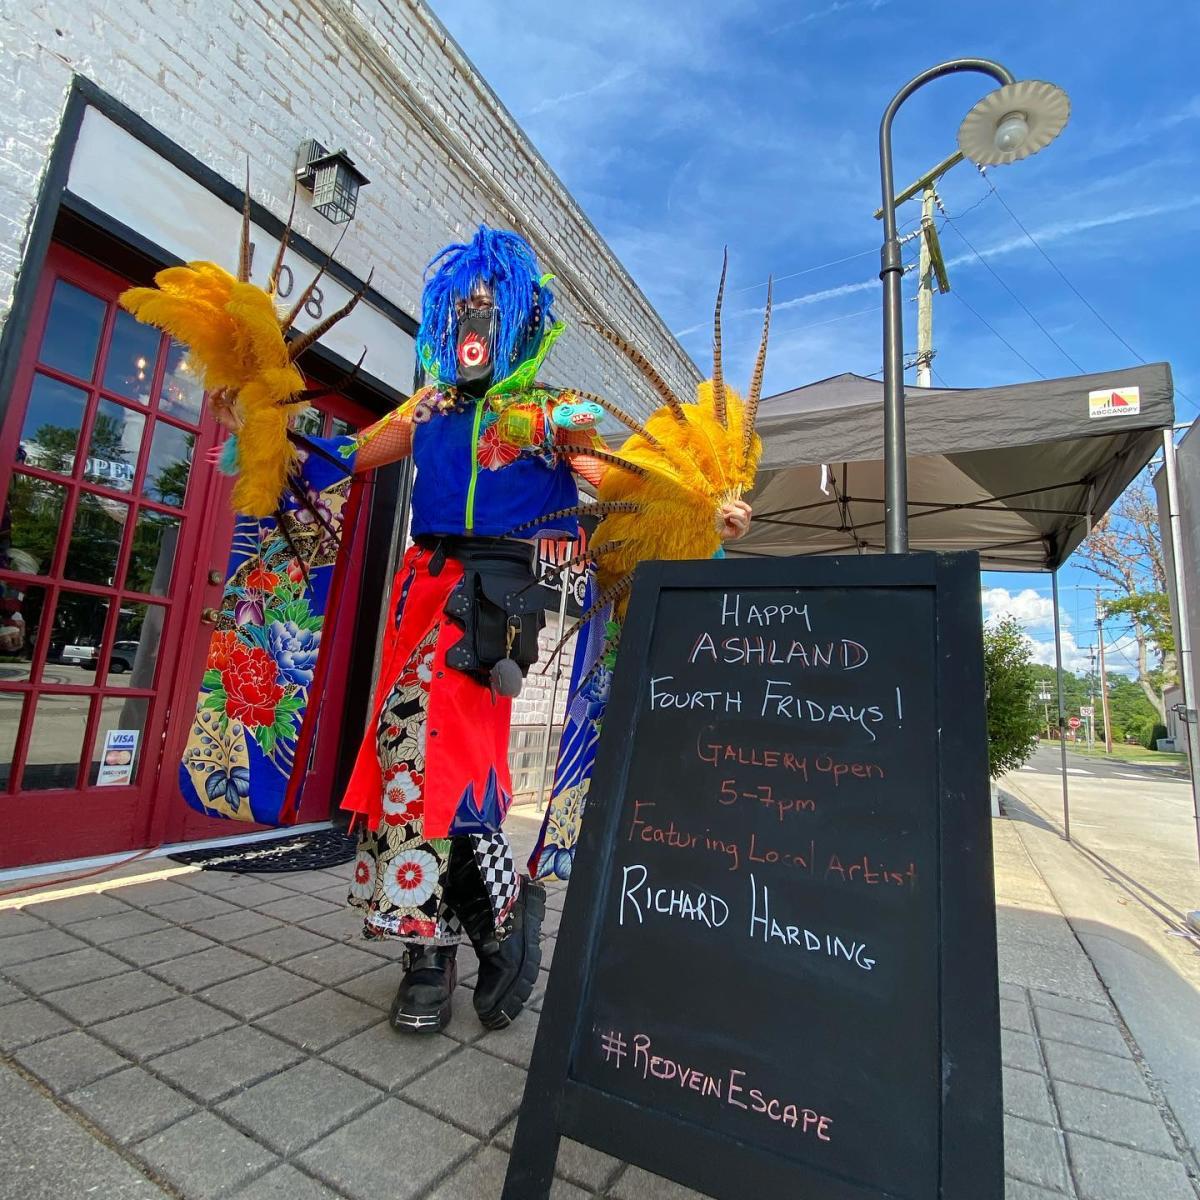 108
OPEN
VISA
DISCOVER
ABCCANOPY
HAPPY
ASHLAND
FOURTH FRIDAYS!
GALLERY Open
5-7pm
Featuring Local Artist
RICHARD HARDING
#REDVEINESCAPE